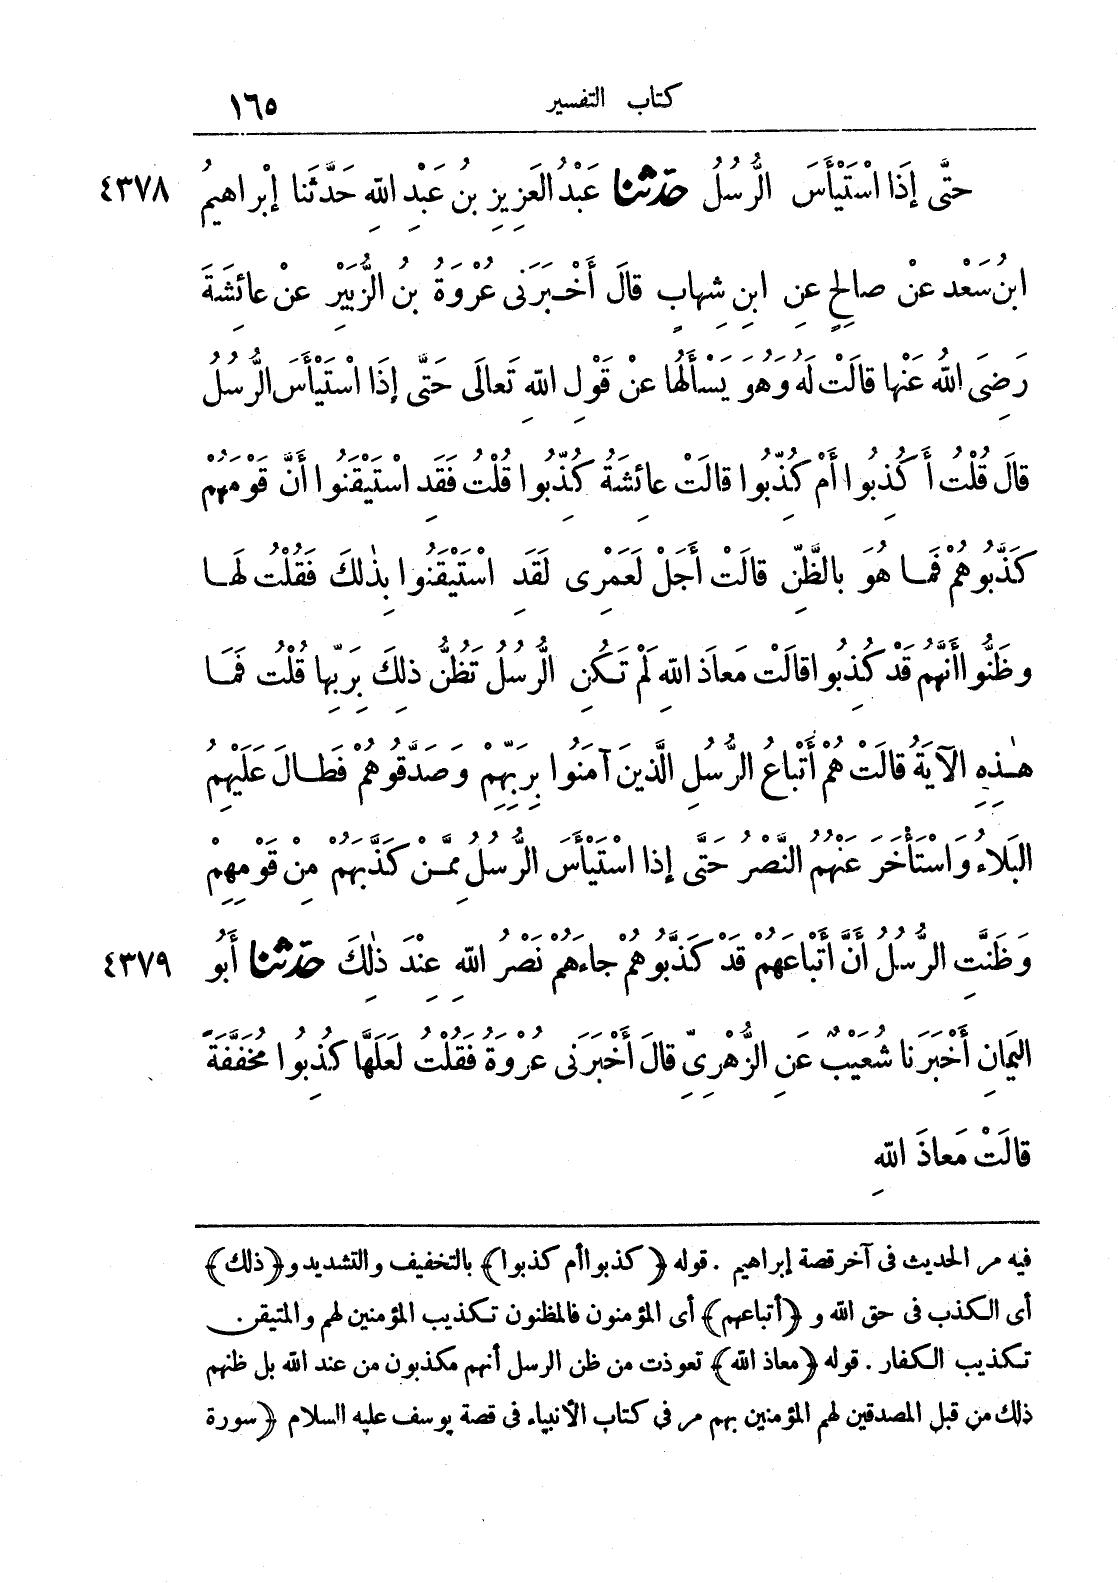 كتاب التفسير ١٦٥
حتَّى إذَا اسْتَيْأَسَ الرُّسُلُ حدثنا عَبْدُ العَزِيزِ بنُ عَبْدِ اللهِ حَدَّثَنا إبْراهيمُ ٤٣٧٨
ابنُ سَعْد عنْ صالحٍ عنِ ابنِ شِهابٍ قالَ أَخْبَرَنى عُرْوَةُ بنُ الزُّبَيْرِ عنْ عائِشَةَ
رَضىَ اللهُ عَنْها قالَتْ لَهُ وَهُوَ يَسْأَلُها عنْ قَوْلِ اللهِ تَعالَى حَتَّى إذَا اسْتَيْأَسَ الرُّسُلُ
قالَ قُلْتُ أَكُذِبُوا أمْ كُذِّبُوا قالَتْ عائِشَةُ كُذِّبُوا قُلْتُ فَقَدِ اسْتَيْقَنُوا أنَّ قَوْمَهُمْ
كَذَّبُوهُمْ فَمَا هُوَ بالظَّنِّ قالَتْ أجَلْ لَعَمْرِى لَقَدِ اسْتَيْقَنُوا بِذٰلكَ فَقُلْتُ لهَا
وظَنُّوا أنَّهُم قَدْ كُذِبُوا قالَتْ مَعاذَ اللهِ لَمْ تَكُنِ الرُّسُلُ تَظُنُّ ذلِكَ بِرَبِّها قُلْتُ فَمَا
هٰذِهِ الآيَةُ قالَتْ هُمْ أتْباعُ الرُّسُلِ الَّذينَ آمَنُوا بِرَبِّهِمْ وَصَدَّقُوهُمْ فَطالَ عَلَيْهِمُ
البَلاءُ وَاسْتَأْخَرَ عَنْهُمُ النَّصْرُ حَتَّى إذا اسْتَيْأَسَ الرُّسُلُ مِمَّنْ كَذَّبَهُمْ مِنْ قَوْمِهِمْ
وَظَنَّتِ الرُّسُلُ أنَّ أتْباعَهُمْ قَدْ كَذَّبُوهُمْ جاءَهُمْ نَصْرُ اللهِ عِنْدَ ذٰلِكَ حدثنا أبُو ٤٣٧٩
اليَمانِ أخْبَرَنا شُعَيْبٌ عَنِ الزُّهْرِىِّ قالَ أخْبَرَنى عُرْوَةُ فَقُلْتُ لَعَلَّها كُذِبُوا مُخَفَّفَةً
قالَتْ مَعاذَ اللهِ
فيه مر الحديث فى آخر قصة إبراهيم . قوله ﴿كذبوا أم كذبوا﴾ بالتخفيف والتشديد و﴿ذلك﴾
أى الكذب فى حق الله و ﴿أتباعهم﴾ أى المؤمنون فالمظنون تكذيب المؤمنين لهم والمتيقن
تكذيب الكفار . قوله ﴿معاذ الله﴾ تعوذت من ظن الرسل أنهم مكذبون من عند الله بل ظنهم
ذلك من قبل المصدقين لهم المؤمنين بهم مر فى كتاب الأنبياء فى قصة يوسف عليه السلام ﴿سورة